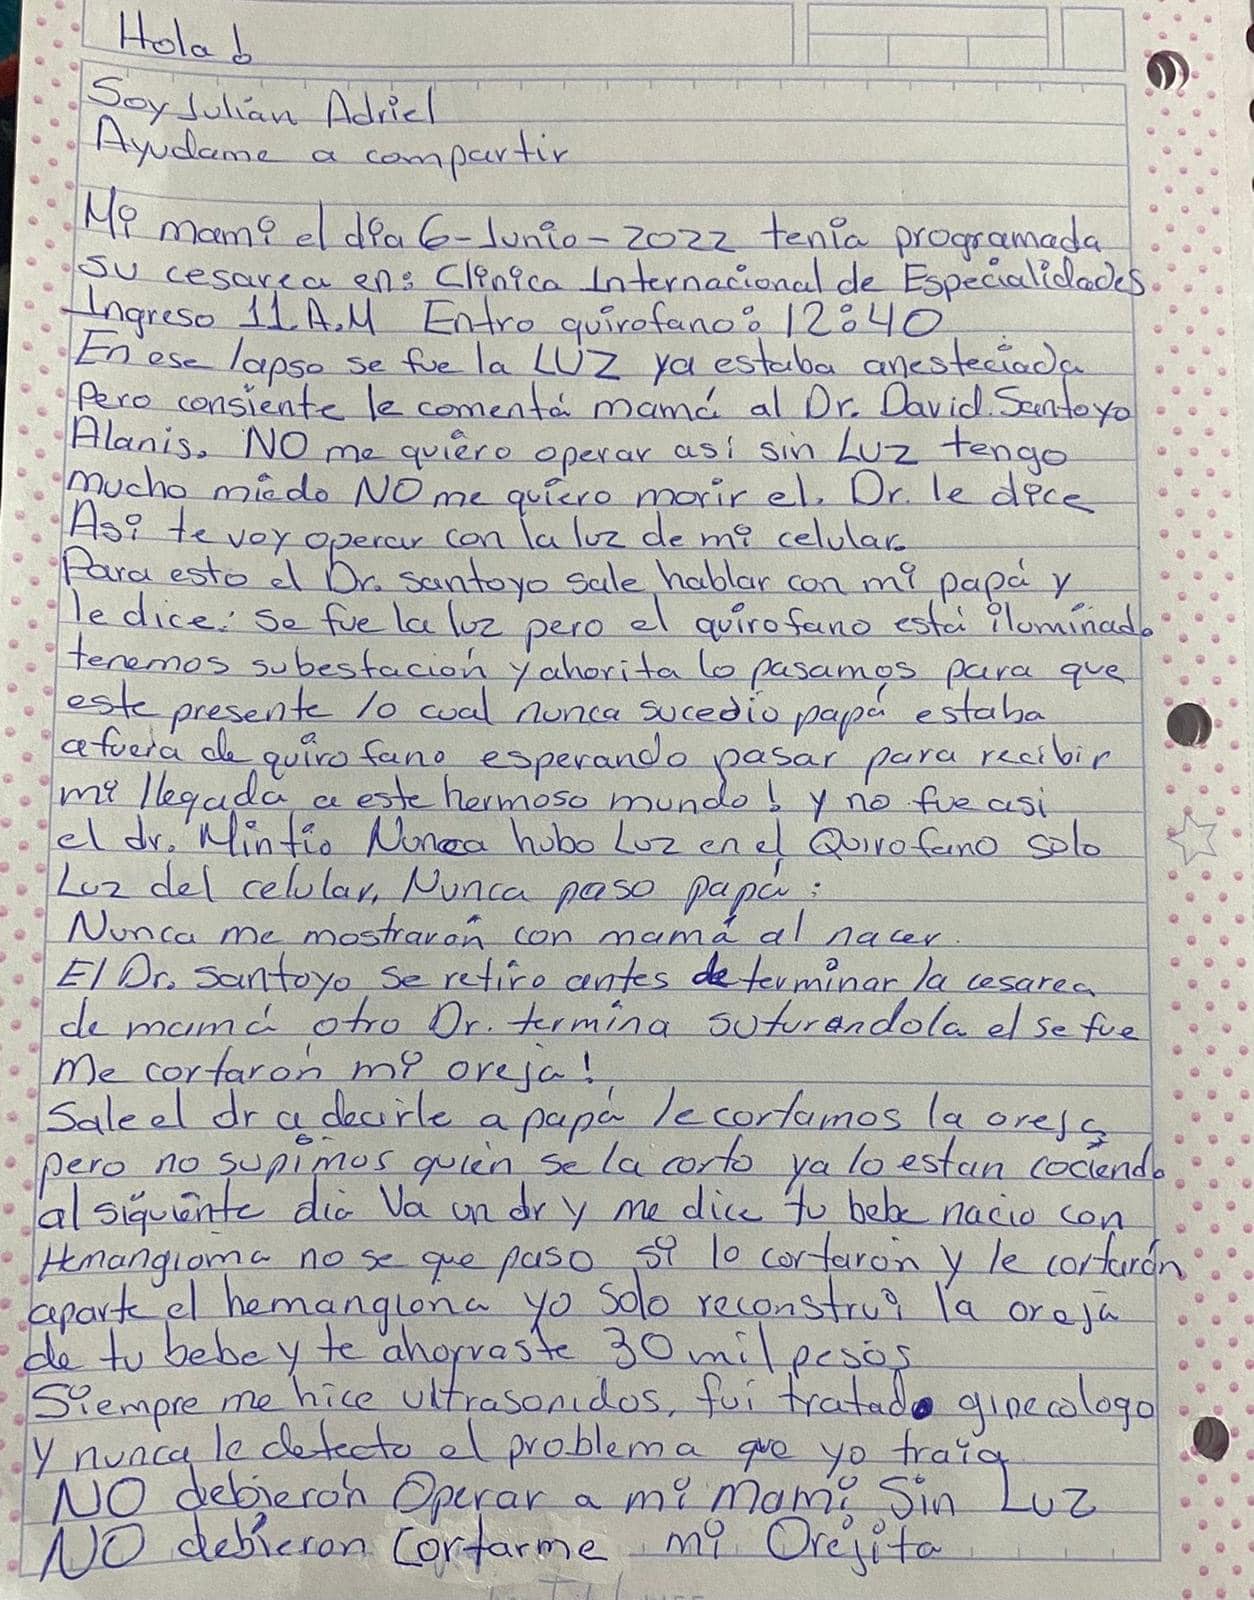 Hola!
Soy Julián Adriel
Ayudame a compartir
Mi mami el día 6-Junio-2022 tenía programada
su cesarea en: Clínica Internacional de Especialidades
Ingreso 11 A.M Entro quirofano: 12:40
En ese lapso se fue la LUZ ya estaba anesteciada
Pero consiente le comentá mamá al Dr. David Santoyo
Alanis. NO me quiero operar así sin Luz tengo
mucho miedo NO me quiero morir el. Dr. le dice
Así te voy operar con la luz de mi celular.
Para esto el Dr. Santoyo sale hablar con mi papá y
le dice: Se fue la luz pero el quirofano está iluminado
tenemos subestación y ahorita lo pasamos para que
este presente lo cual nunca sucedio papá estaba
afuera de quirofano esperando pasar para recibir
mi llegada a este hermoso mundo! y no fue asi
el dr. Mintio Nunca hubo Luz en el Quirofano solo
Luz del celular, Nunca paso papá:
Nunca me mostrarón con mamá al nacer.
El Dr. Santoyo se retiro antes de terminar la cesarea
de mamá otro Dr. termina suturandola el se fue
Me cortarón mi oreja!
Sale el dr a decirle a papá le cortamos la oreja
pero no supimos quién se la corto ya lo estan cociendo
al siguiente dia Va un dr y me dice tu bebe nacio con
Hmangioma no se que paso si lo cortaron y le cortarón
aparte el hemangiona yo solo reconstrui la oreja
de tu bebe y te ahorraste 30 mil pesos
Siempre me hice ultrasonidos, fui tratado ginecologo
y nunca le detecto el problema que yo traia
NO debieron Operar a mi mami Sin Luz
NO debieron Cortarme mi Orejita